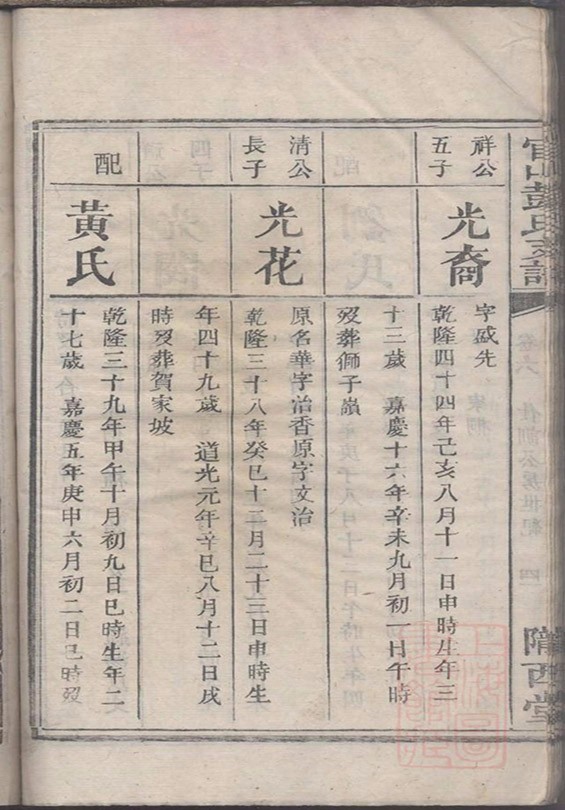 祥公
五子
光裔
字盛先
乾隆四十四年己亥八月十一日申時生年三
十三歲 嘉慶十六年辛未九月初一日午時
歿葬獅子嶺
清公
長子
光花
原名華字治香原字文治
乾隆三十八年癸巳十二月二十三日申時生
年四十九歲 道光元年辛巳八月十二日戌
時歿葬賀家坡
配
黃氏
乾隆三十九年甲午十月初九日巳時生年二
十七歲 嘉慶五年庚申六月初二日巳時歿